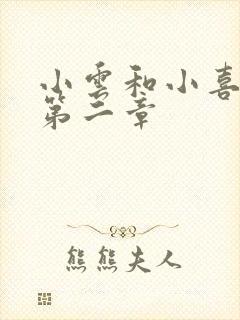 小雲和小喜
第二章
熊熊夫人